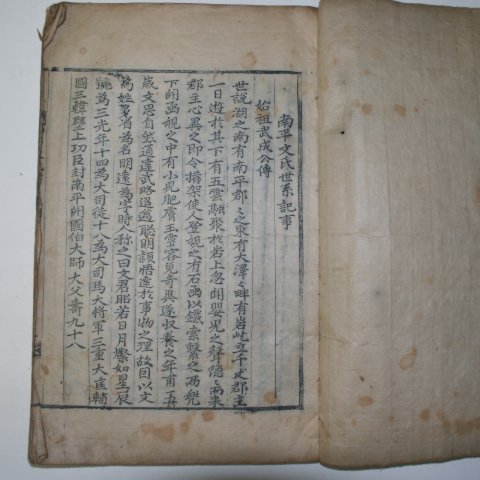 南平文氏世系記事
始祖武成公傳
世說湖之南有南平郡郡之東有大澤澤畔有岩屹立千丈郡主
一日遊於其下有五雲融聚於岩上忽聞嬰兒之聲隱隱而來
郡主心異之即令構架使人登視之有石函以鐵索繫之而兠
下開函視之中有小兒肥膚玉雪容皃奇異遂收養之年甫五
歲文思自然通達武略迢邁聡明穎悟達於事物之理故因以文
為姓多省為名明遠為字時人称之曰文君昭若日月燦如星辰
號為三光年十四為大司徒十八為大司馬大將軍三重大匡輔
國三韓壁上功臣封南平開國伯大師大父壽九十八